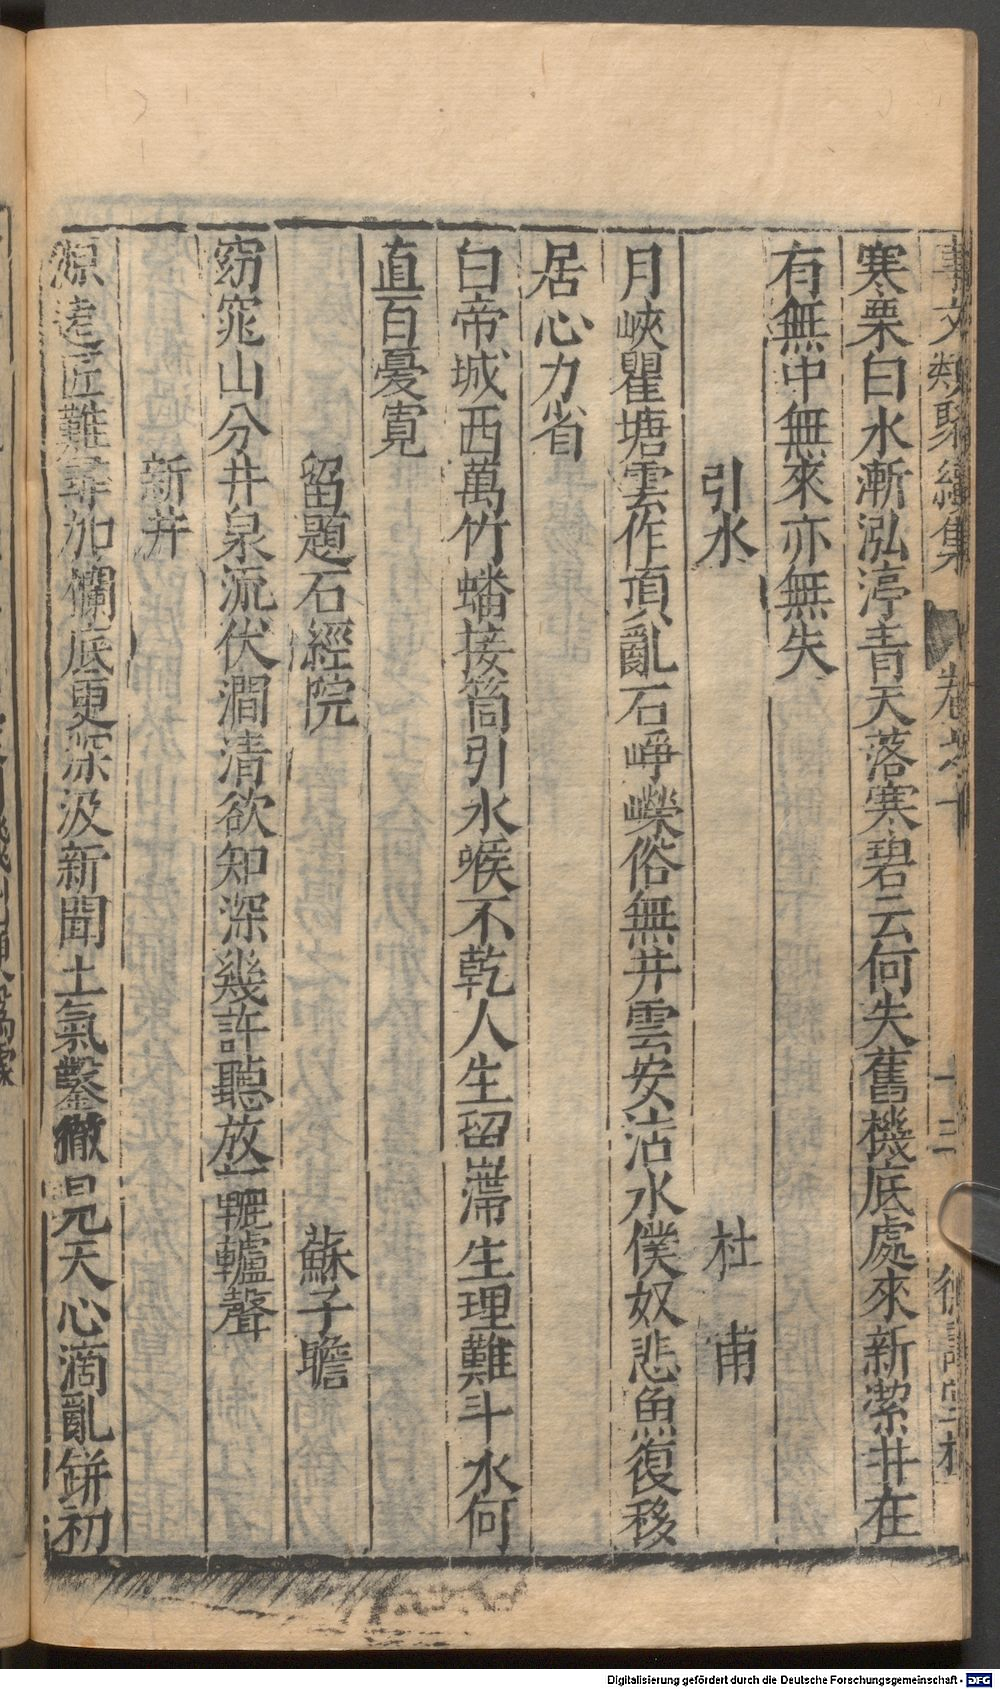 事文類聚續集 卷之十
寒栗白水漸泓渟青天落寒碧云何失舊機底處來新縈井在
有無中無來亦無失
引水 杜甫
月峽瞿塘雲作頂亂石崢嶸俗無井雲安沽水僕奴悲魚復移
居心力省
白帝城西萬竹蟠接筒引水喉不乾人生留滯生理難斗水何
直百憂寬
留題石經院 蘇子瞻
窈窕山分井泉流伏澗清欲知深幾許聽放一轆轤聲
新井
源遠匠難尋加欄底更深汲新聞土氣鑿徹見天心滴亂缾初
Digitalisierung gefördert durch die Deutsche Forschungsgemeinschaft - DFG